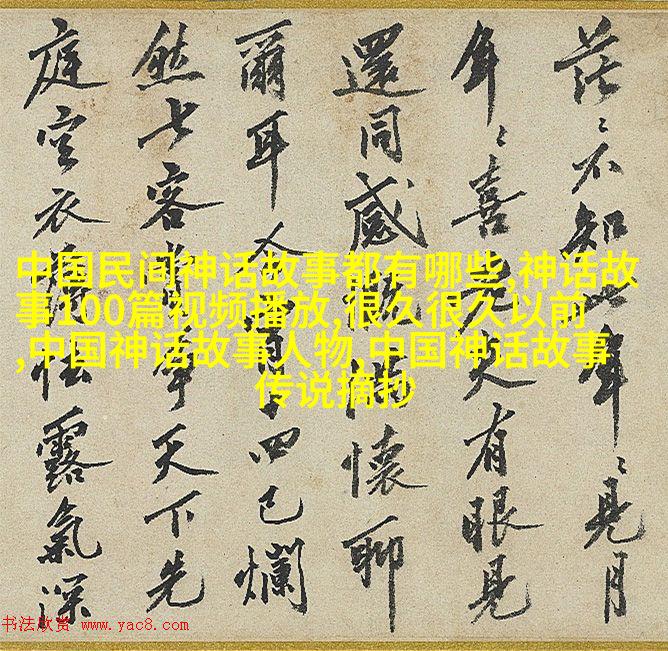 茫〻不知年〻見月
年〻喜天有眼見
還同感懷聊
爾耳今四已爛
然七客年天下先
庭空衣怯露氣深
中国民间神话故事都有哪些,神话故
事100篇视频播放,很久很久以前
,中国神话故事人物,中国神话故事
传说摘抄
书法欣赏 www.yac8.com